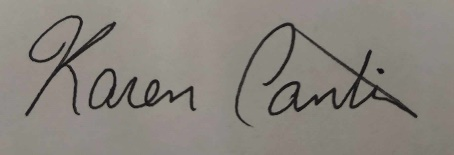 Karen Cantin